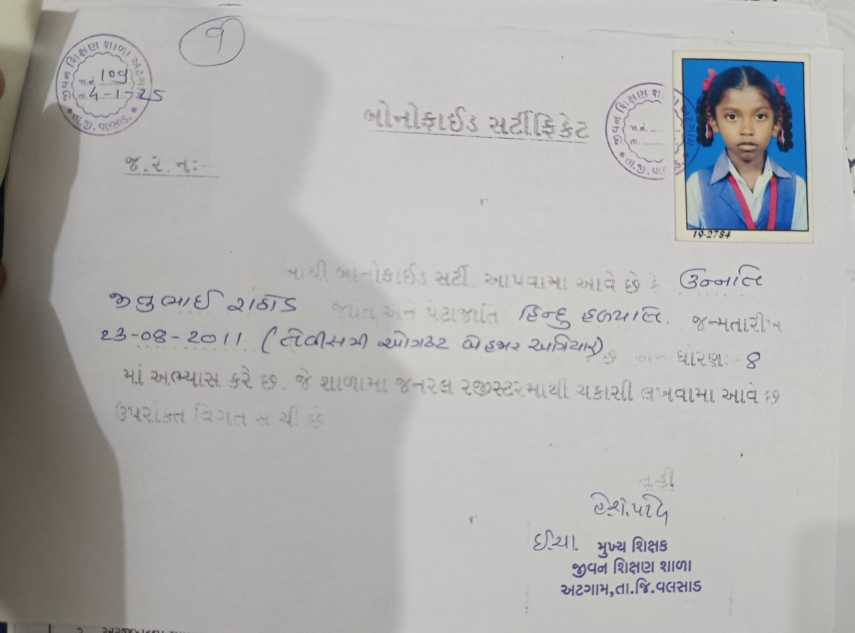 ૧
જીવન શિક્ષણ શાળા અટગામ
જા.નં. 109
તા. 4-1-25
તા.જી. વલસાડ.
બોનોફાઈડ સર્ટીફિકેટ
જીવન શિક્ષણ શા
જા.નં.
તા.
તા.જી. વલ
19-2784
જ.ર.નઃ-
આથી બોનોફાઈડ સર્ટી આપવામા આવે છે કે ઉન્નતિ
જીલુભાઈ રાઠોડ જાત અને પેટાજાતિ હિન્દુ હળપતિ. જન્મતારીખ
23-08-2011 (તેવીસમી ઓગસ્ટ બેહજાર અગિયાર) છે અને ધોરણઃ- 8
માં અભ્યાસ કરે છે. જે શાળામા જનરલ રજીસ્ટરમાથી ચકાસી લખવામા આવે છે
ઉપરોક્ત વિગત સાચી છે
ઈ.ચા. મુખ્ય શિક્ષક
જીવન શિક્ષણ શાળા
અટગામ,તા.જિ.વલસાડ